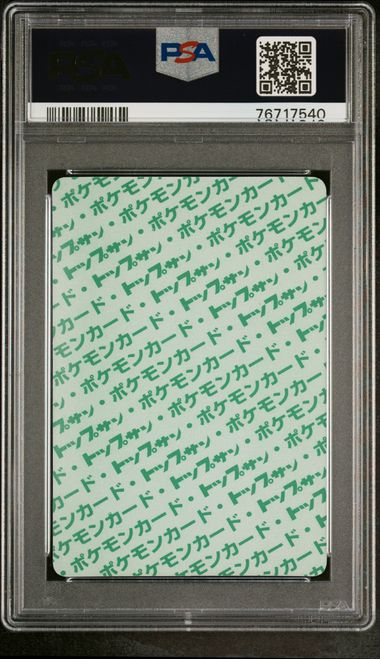 PSA
PSA
76717540
ポケモンカード・
・ポケモンカード・
トップサン・ポケモンカード
・トップサン・ポケモンカード
ポケモンカード・トップサン・ポケモンカード
ポケモンカード・トップサン・ポケモンカード
ポケモンカード・トップサン・ポケモンカード
・ポケモンカード・トップサン・
トップサン・ポケモンカード・トップサン
・トップサン・ポケモンカード・トップサン
ポケモンカード・トップサン・ポケモンカード
ポケモンカード・トップサン
ポケモンカード
PSA